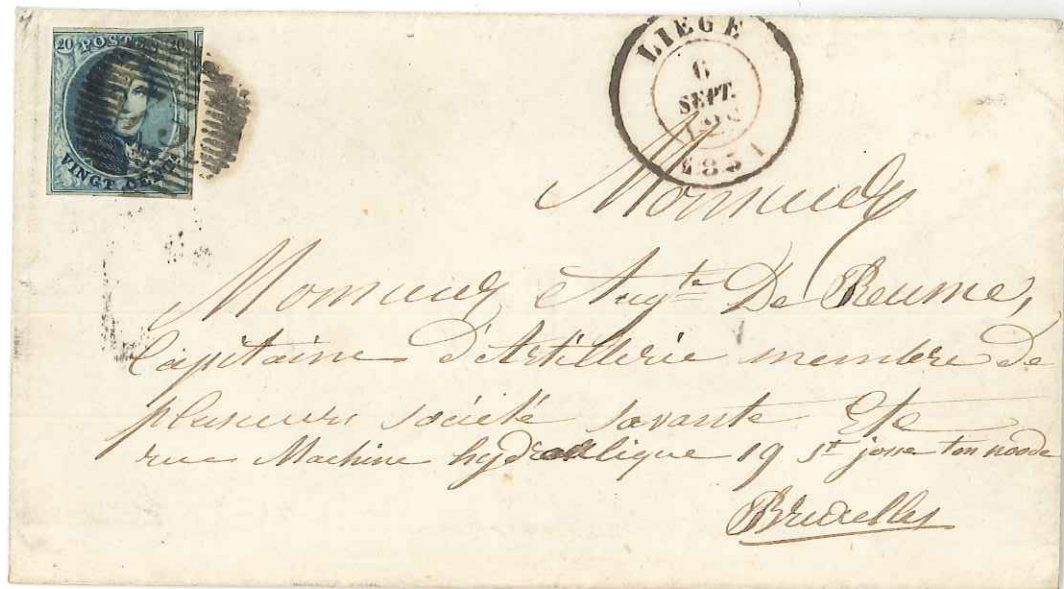 20 POSTES 20
VINGT CENTS
LIEGE
6
SEPT.
1851
Monsieur
Monsieur Augte De Reume,
Capitaine d'Artillerie membre de
plusieurs société savante Etc
rue Machine hydraulique 19 st josse ten noode
Bruxelles